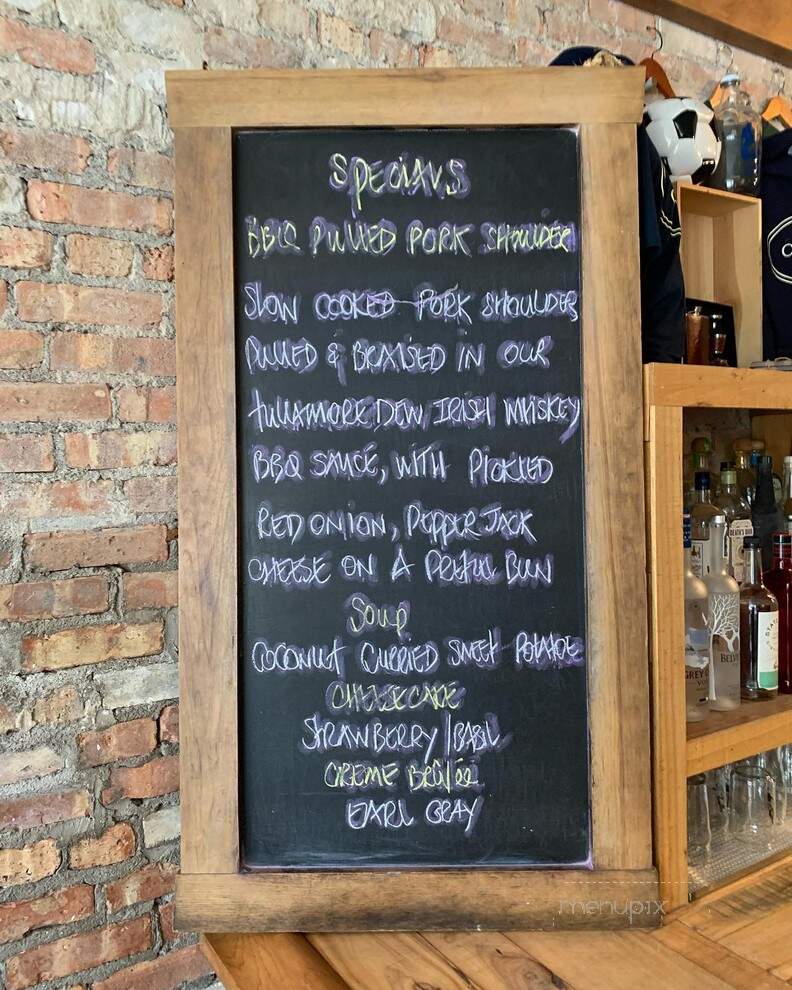 SPECIALS
BBQ PULLED PORK SHOULDER
SLOW COOKED PORK SHOULDER
PULLED & BRAISED IN OUR
TULLAMORE DEW IRISH WHISKEY
BBQ SAUCE, WITH PICKLED
RED ONION, PEPPER JACK
CHEESE ON A PRETZEL BUN
SOUP
COCONUT CURRIED SWEET POTATOE
CHEESECAKE
STRAWBERRY/BASIL
CREME BRULEE
EARL GRAY
GREY
BELV
menupix